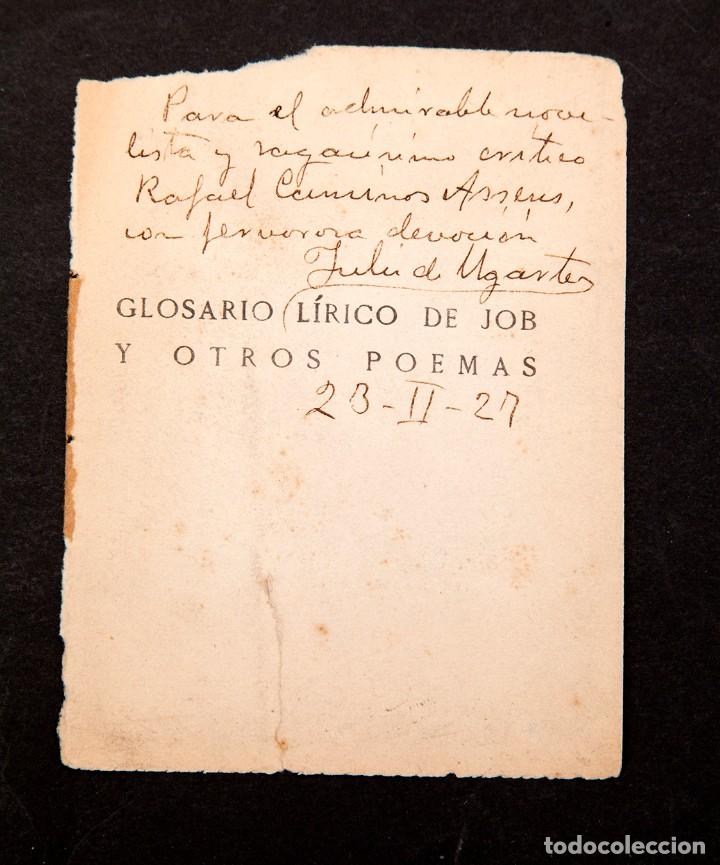 Para el admirable nove-
lista y sagacísimo crítico
Rafael Cansinos Assens,
con fervorosa devoción
Julio de Ugarte
GLOSARIO LÍRICO DE JOB
Y OTROS POEMAS
23-II-27
todocoleccion